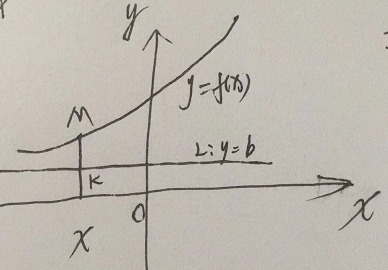 y
y=f(x)
M
L: y=b
K
O
X
X